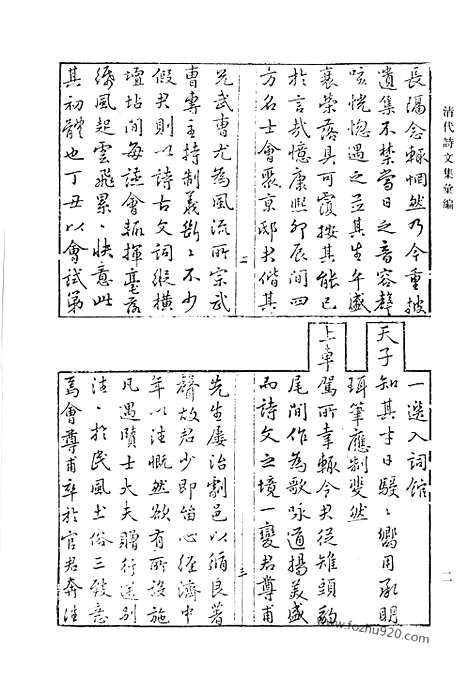 清代詩文集彙編
長隔念輒惘然乃今重披
遺集不禁當日之音容聲
咳恍惚遇之並其生平盛
衰榮落具可覆按其能已
於言哉憶康熙卯辰間四
方名士會聚京邸君偕其
二
兄武曹尤為風流所宗武
曹專主持制義斷〻不少
假君則以詩古文詞縱橫
壇坫間每讌會輒揮毫落
紙風起雲飛累〻快意此
其初體也丁丑以會試第
一選入詞館
天子知其才日駸〻嚮用承明
珥筆應制斐然
上車駕所幸輒令君從雉頭豹
尾間作為歌詠道揚美盛
而詩文之境一變君尊甫
三
先生屢治劇邑以循良著
聲故君少即留心經濟中
年以往慨然欲有所設施
凡遇士大夫贈行送別
往〻於民風土俗三致意
焉會尊甫卒於官君奔往
二
www.fozhu920.com